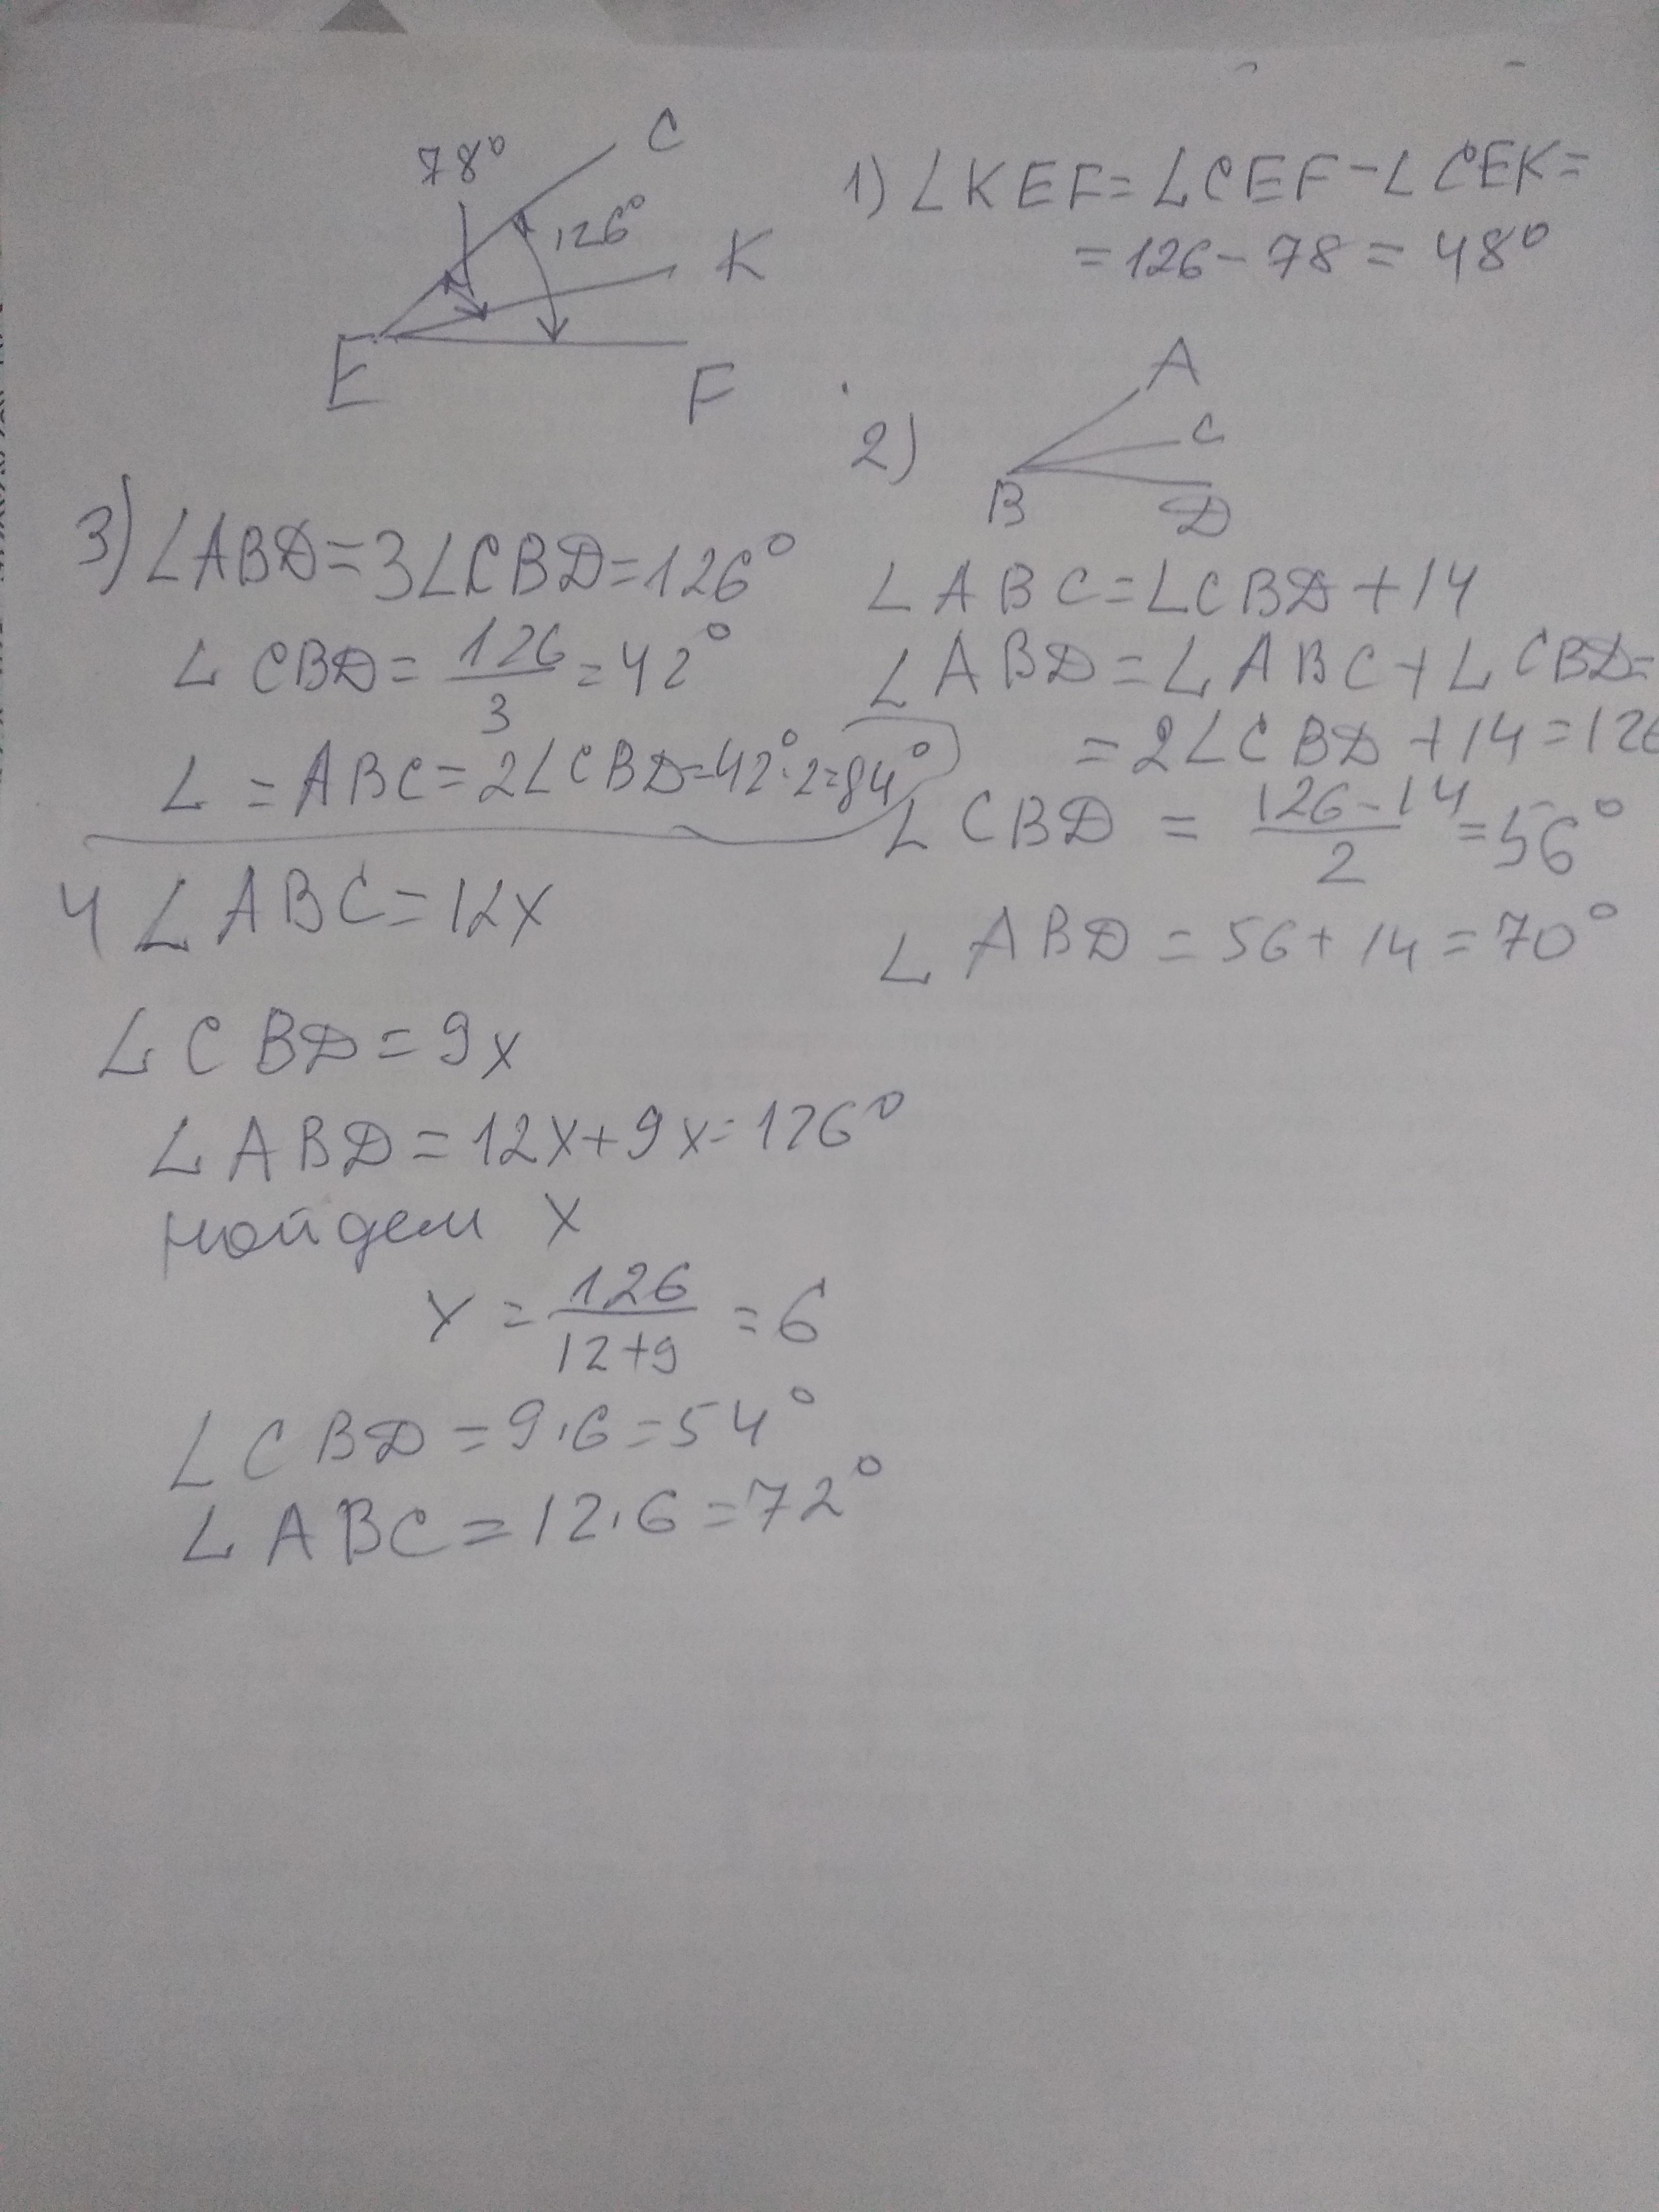 78°
C
126°
K
E
F
1) ∠KEF=∠CEF-∠CEK=
=126-78=48°
2)
A
C
B
D
∠ABC=∠CBD+14
∠ABD=∠ABC+∠CBD=
=2∠CBD+14=126
∠CBD = 126-14/2 =56°
∠ABD=56+14=70°
3) ∠ABD=3∠CBD=126°
∠CBD= 126/3 =42°
∠=ABC=2∠CBD=42°·2=84°
4 ∠ABC=12x
∠CBD=9x
∠ABD=12x+9x=126°
найдем x
x = 126/12+9 =6
∠CBD=9·6=54°
∠ABC=12·6=72°